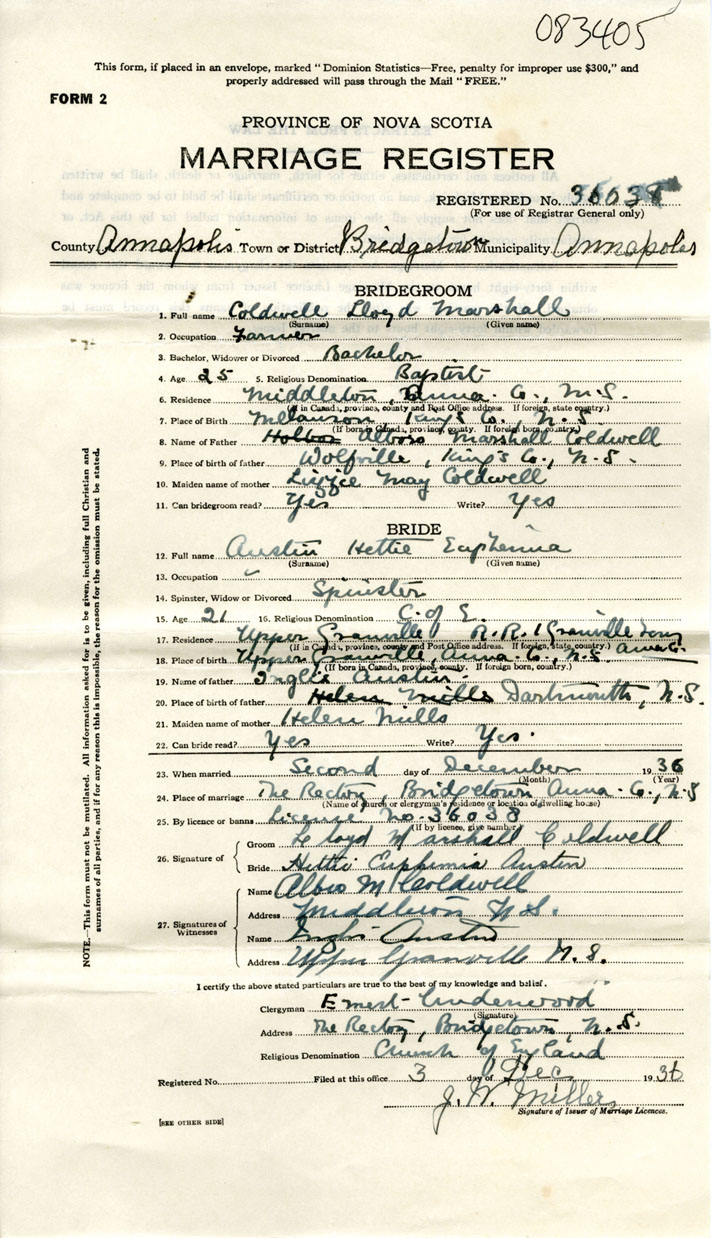 083405
This form, if placed in an envelope, marked "Dominion Statistics—Free, penalty for improper use $300," and
properly addressed will pass through the Mail "FREE."
FORM 2
PROVINCE OF NOVA SCOTIA
MARRIAGE REGISTER
REGISTERED No. 36038
(For use of Registrar General only)
County Annapolis Town or District Bridgetown Municipality Annapolis
BRIDEGROOM
1. Full name Coldwell Lloyd Marshall
(Surname) (Given name)
2. Occupation Farmer
3. Bachelor, Widower or Divorced Bachelor
4. Age 25 5. Religious Denomination Baptist
6. Residence Middleton, Anna. Co., N.S.
(If in Canada, province, county and Post Office address. If foreign, state country.)
7. Place of Birth King's Co. N.S.
(If born in Canada, province, county. If foreign born, country.)
8. Name of Father Marshall Coldwell
9. Place of birth of father Wolfville, King's Co., N.S.
10. Maiden name of mother Lizzie May Coldwell
11. Can bridegroom read? Yes Write? Yes
BRIDE
12. Full name Austin Hettie Euphemia
(Surname) (Given name)
13. Occupation
14. Spinster, Widow or Divorced Spinster
15. Age 21 16. Religious Denomination C. of E.
17. Residence Upper Granville, R.R. 1 Granville Ferry
(If in Canada, province, county and Post Office address. If foreign, state country.)
Anna Co.
18. Place of birth Upper Granville, Anna. Co., N.S.
(If born in Canada, province, county. If foreign born, country.)
19. Name of father Inglis Austin
20. Place of birth of father Helen Mills Dartmouth, N.S.
21. Maiden name of mother Helen Mills
22. Can bride read? Yes Write? Yes.
23. When married Second day of December 1936
(Month) (Year)
24. Place of marriage The Rectory, Bridgetown Anna. Co., N.S
(Name of church or clergyman's residence or location of dwelling house)
25. By licence or banns License No. 36038
(If by licence, give number)
26. Signature of Groom Lloyd Marshall Coldwell
Bride Hettie Euphemia Austin
27. Signatures of Witnesses
Name M Coldwell
Address Middleton N.S.
Name Inglis Austin
Address Upper Granville N.S.
I certify the above stated particulars are true to the best of my knowledge and belief.
Clergyman Ernest Underwood
(Signature)
Address The Rectory, Bridgetown, N.S.
Religious Denomination Church of England
Registered No. Filed at this office 3 day of Dec 1936
J. W. Miller
Signature of Issuer of Marriage Licences.
[SEE OTHER SIDE]
NOTE.—This form must not be mutilated. All information asked for is to be given, including full Christian and
surnames of all parties, and if for any reason this is impossible, the reason for the omission must be stated.